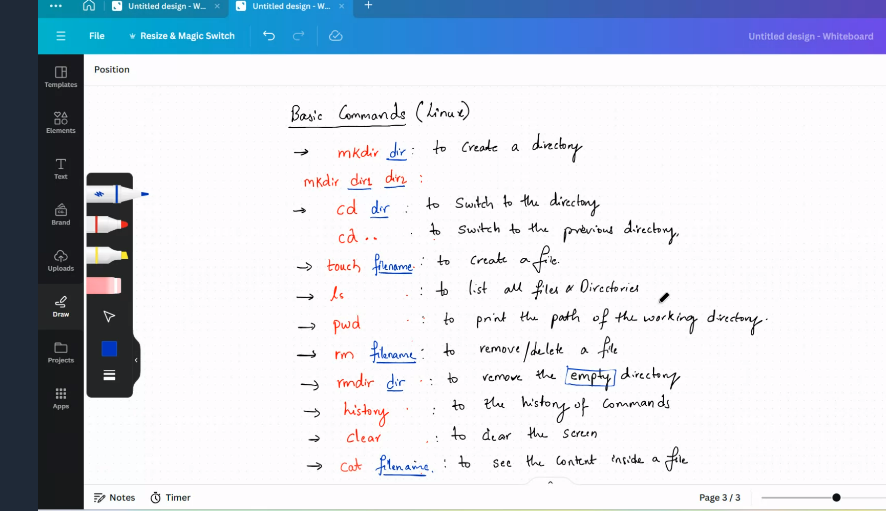 Untitled design - W... × Untitled design - W... × +
File Resize & Magic Switch Untitled design - Whiteboard
Position
Templates
Elements
Text
Brand
Uploads
Draw
Projects
Apps
Basic Commands (Linux)
→ mkdir dir : to create a directory
mkdir dir1 dir2 :
→ cd dir : to switch to the directory
cd .. : to switch to the previous directory.
→ touch filename : to create a file.
→ ls : to list all files & Directories
→ pwd : to print the path of the working directory.
→ rm filename : to remove/delete a file
→ rmdir dir : to remove the empty directory
→ history : to the history of commands
→ clear : to clear the screen
→ cat filename : to see the content inside a file
Notes Timer Page 3 / 3